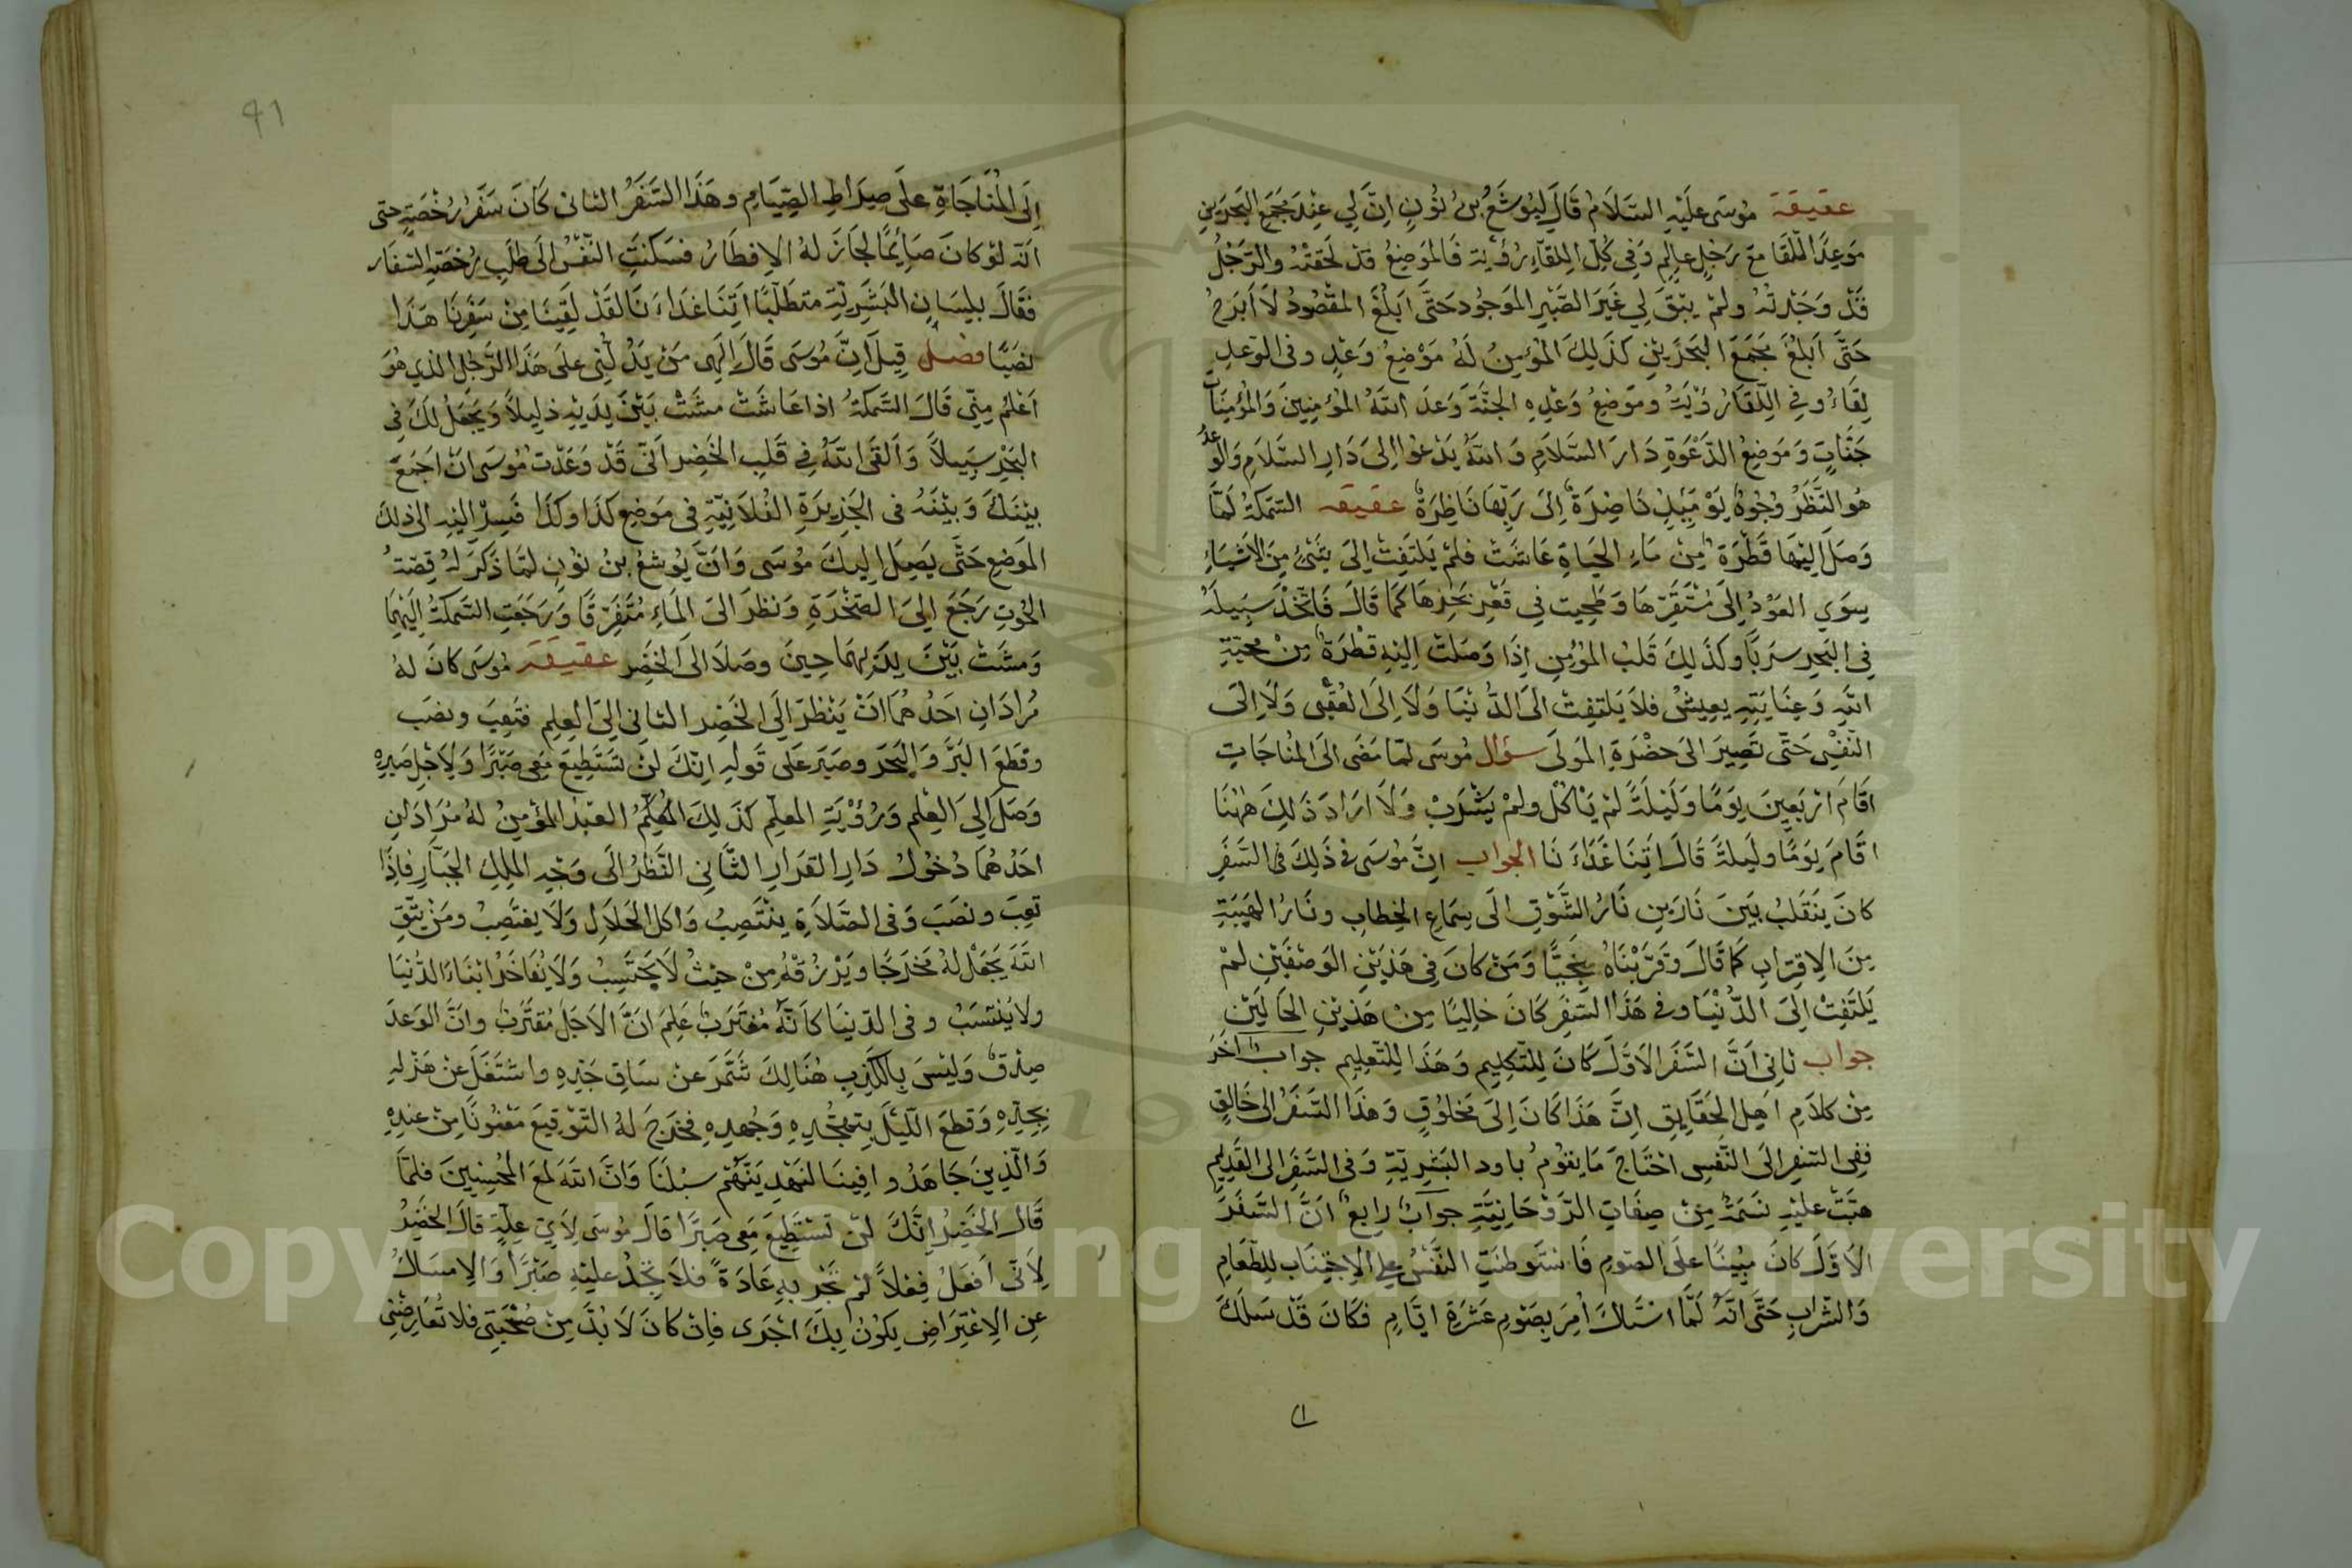 عقيقة موسى عليه السلام قال ليوشع بن نون ان لي عند مجمع البحرين
موعد اللقا مع رجل عالم وفي كل اللقاء رؤية فالموضع قد لحقته والرجل
قد وجدته ولم يبق لي غير الصبر الموجود حتى ابلغ المقصود لا ابرح
حتى ابلغ مجمع البحرين كذلك المؤمن له موضع وعد وفي الوعد
لقاء وفي اللقاء رؤية وموضع وعده الجنة وعد الله المؤمنين والمؤمنات
جنات وموضع الدعوة دار السلام والله يدعوا الى دار السلام والوعد
هو النظر وجوه يومئذ ناضرة الى ربها ناظرة عقيقه السمكة لما
وصل اليها قطرة من ماء الحياة عاشت فلم يلتفت الى شئ من الاشياء
سوي العود الى مستقرها وطحيت في قعر بحرها كما قال فاتخذ سبيله
في البحر سربا وكذلك قلب المؤمن اذا وصلت اليه قطرة من محبة
الله وعنايته يعيش فلا يلتفت الى الدنيا ولا الى العقبى ولا الى
النفس حتى تصير الى حضرة المولى سؤال موسى لما مضى الى المناجات
اقام اربعين يوما وليلة لم ياكل ولم يشرب ولا اراد ذلك ههنا
اقام يوما وليلة قال اتنا غداءنا الجواب ان موسى في ذلك في السفر
كان ينقلب بين نارين نار الشوق الى سماع الخطاب ونار الهيبة
من الاقتراب كما قال وقربناه نجيا ومن كان في هذين الوصفين لم
يلتفت الى الدنيا وفي هذا السفر كان خاليا من هذين الحالين
جواب ثاني ان السفر الاول كان للتكليم وهذا للتعليم جواب اخر
من كلام اهل الحقايق ان هذا كان الى مخلوق وهذا السفر الى خالق
ففي السفر الى النفس احتاج ما يقوم باود البشرية وفي السفر الى القديم
هبت عليه نسمة من صفات الروحانية جواب رابع ان السفر
الاول كان مبينا على الصوم فاستوطنت النفس على الاجتناب للطعام
والشراب حتى انه لما استاك امر بصوم عشرة ايام فكان قد سلك
ا
٩١
الى المناجاة على صراط الصيام وهذا السفر الثاني كان سفر رخصة حتى
انه لو كان صائما لجاز له الافطار فسكنت النفس الى طلب رخصة السفار
فقال بلسان البشرية متطلبا اتنا غداءنا لقد لقينا من سفرنا هذا
نصبا فصل قيل ان موسى قال الهي من يدلني على هذا الرجل الذي هو
اعلم مني قال السمكة اذا عاشت مشت بين يديه ذليلا ويجعل لك في
البحر سبيلا والقى الله في قلب الخضر اني قد وعدت موسى ان اجمع
بينك وبينه في الجزيرة الفلانية في موضع كذا وكذا فسر اليه الى ذلك
الموضع حتى يصل اليك موسى وان يوشع بن نون لما ذكر له قصة
الحوت رجع الى الصخرة ونظر الى الماء متفرقا ورجعت السمكة اليهما
ومشت بين يديهما حين وصلا الى الخضر عقيقة موسى كان له
مرادان احدهما ان ينظر الى الخضر الثاني الى العلم فتعب ونصب
وقطع البر والبحر وصبر على قوله انك لن تستطيع معى صبرا ولاجل صبره
وصل الى العلم ورؤية المعلم كذلك المعلم العبد المؤمن له مرادان
احدهما دخول دار القرار الثاني النظر الى وجه الملك الجبار فاذا
تعب ونصب وفي الصلاة ينتصب واكل الحلال ولا يغتصب ومن يتق
الله يجعل له مخرجا ويرزقه من حيث لا يحتسب ولا يفاخر ابناء الدنيا
ولا ينتسب وفي الدنيا كانه مغترب علم ان الاجل مقترب وان الوعد
صدق وليس بالكذب هنالك شمر عن ساق جده واشتغل عن هزله
بجده وقطع الليل بتهجده وجهده فخرج له التوقيع معنونا من عنده
والذين جاهدوا فينا لنهدينهم سبلنا وان الله لمع المحسنين فلما
قال الخضر انك لن تستطيع معى صبرا قال موسى لاي علة قال الخضر
لاني افعل فعلا لم تجر به عادة فلا تجد عليه صبرا والامساك
عن الاعتراض يكون بك احرى فان كان لا بد من صحبتى فلا تعارضني
Copyright © King Saud University